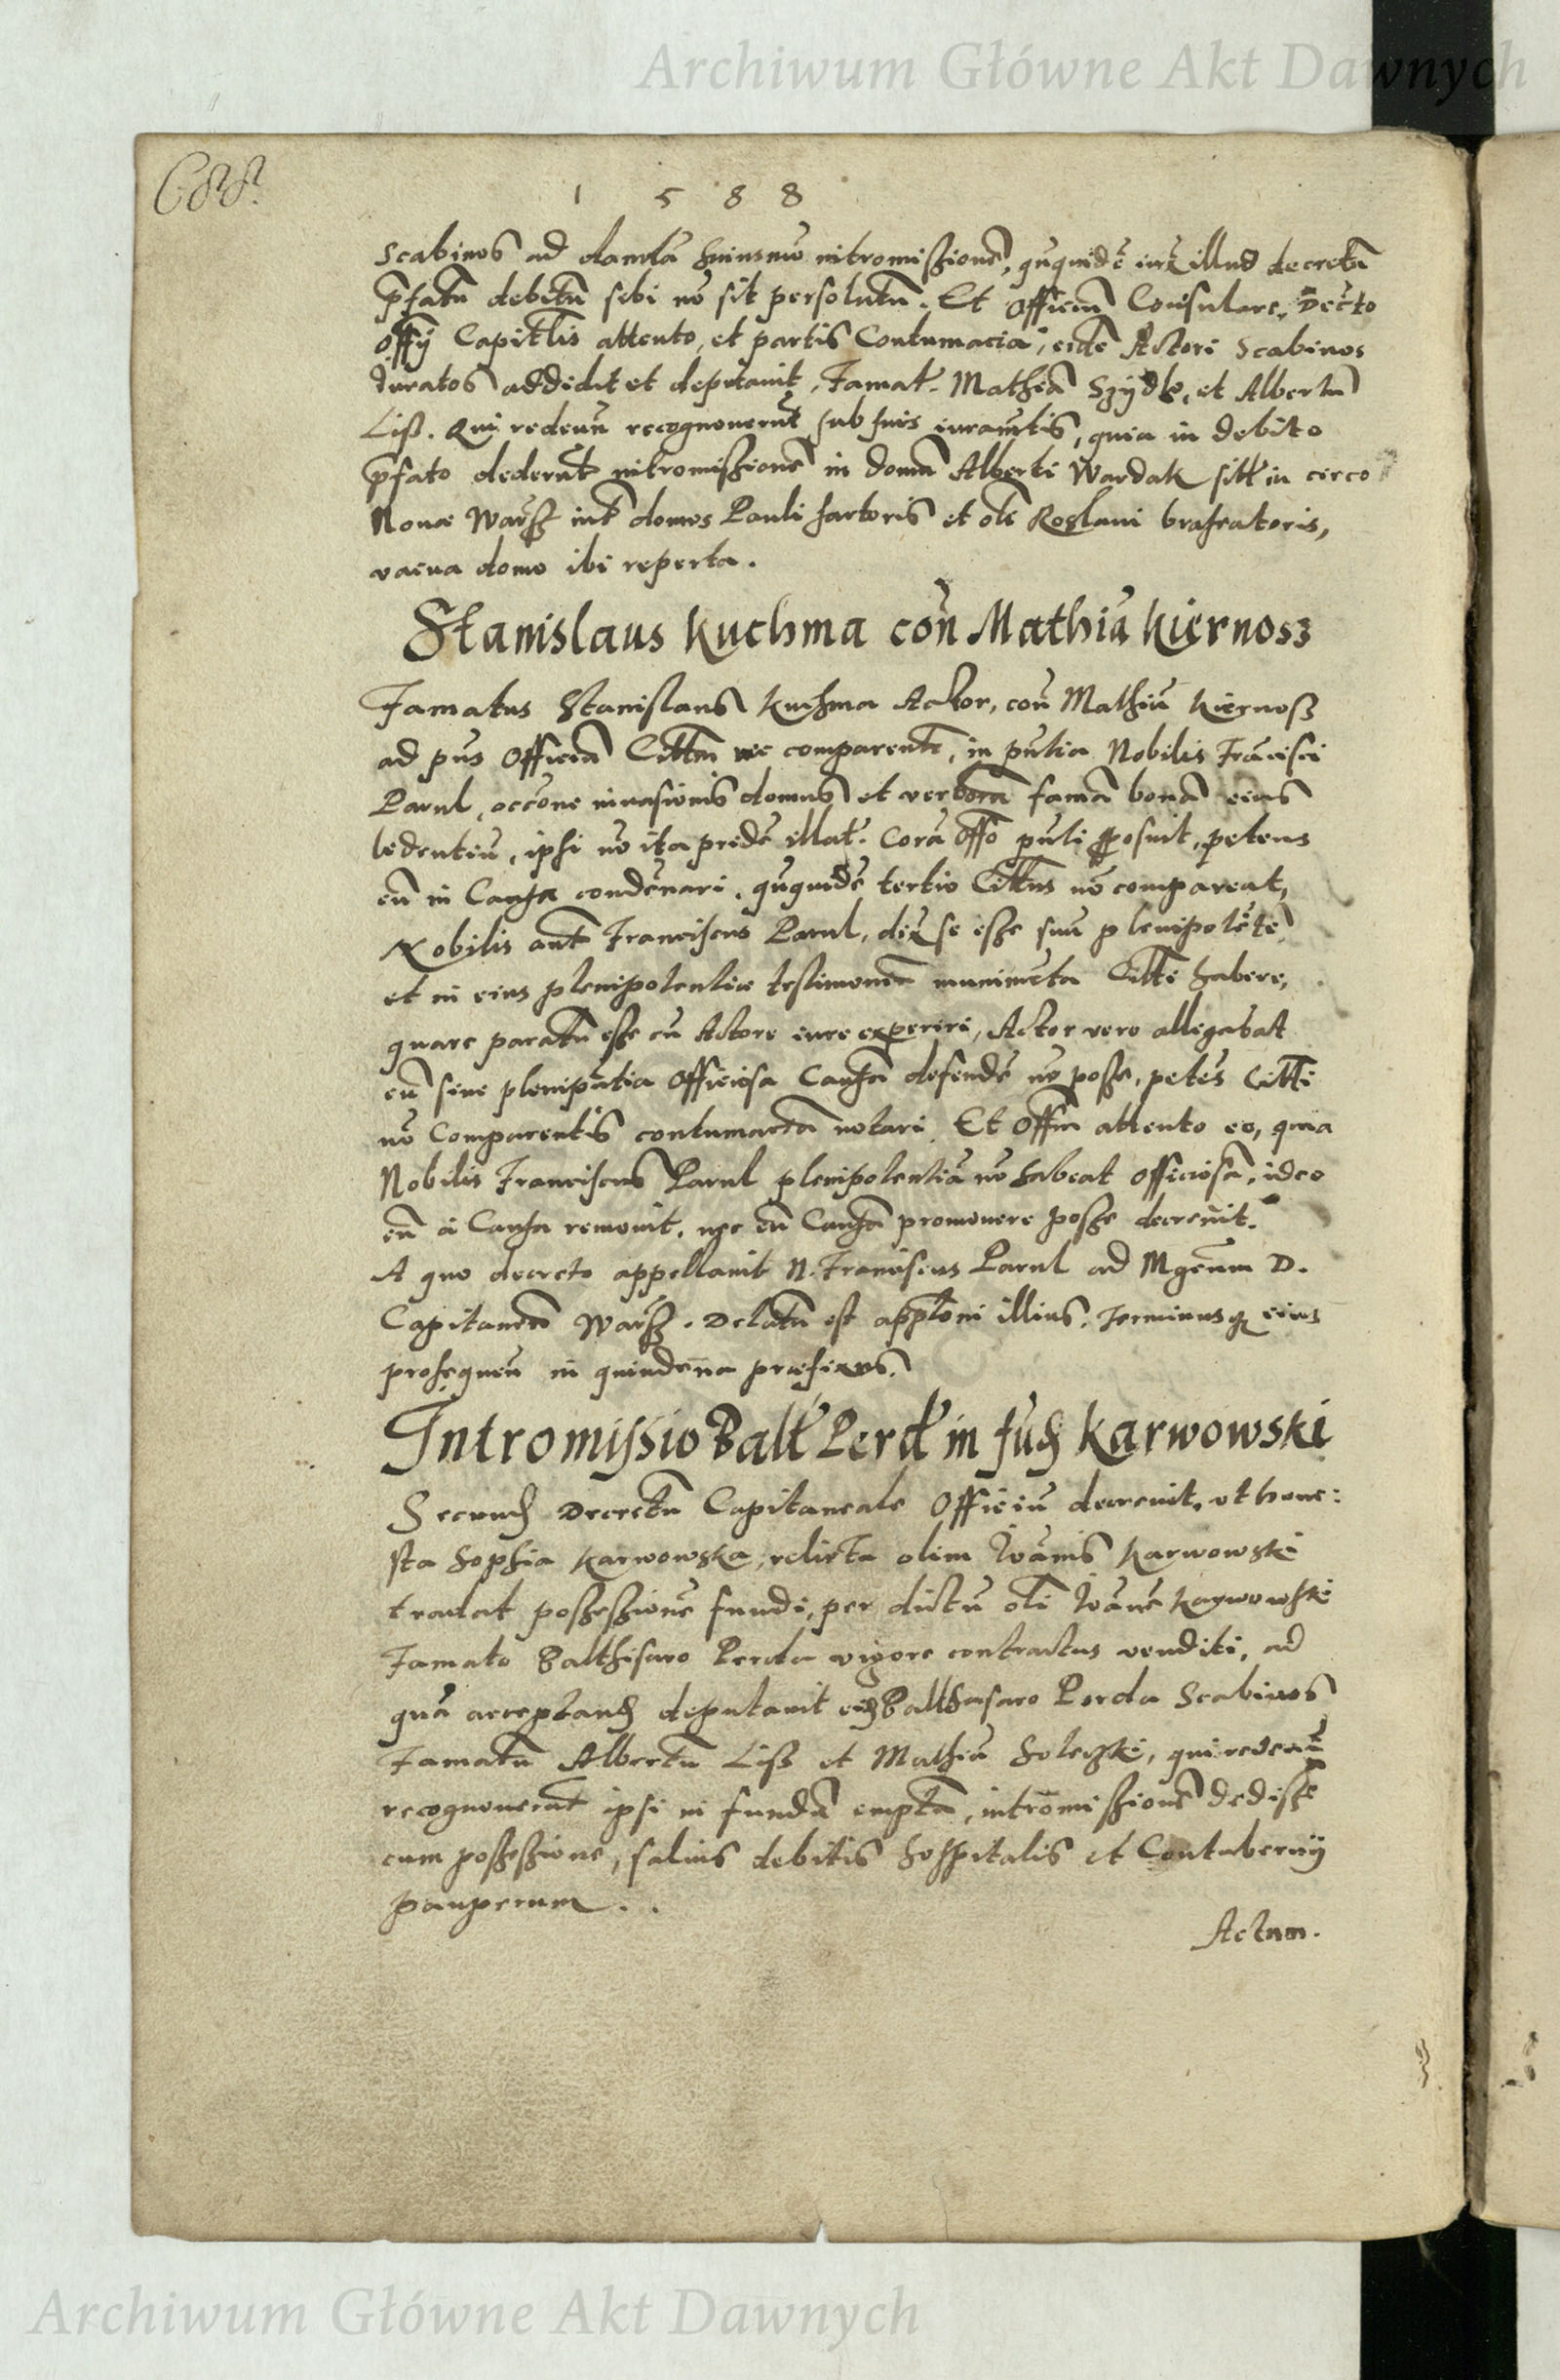 Archiwum Główne Akt Dawnych
688.
1 5 8 8
Scabinos ad dandã huiusmõ intromissionẽ, ququidẽ iux illud decretũ
p̃fatũ debitũ sibi nõ sit persolutũ. Et Officiũ Cõnsulare, Decto
Offÿ Capitlis attento, et partis Contumacia, eidẽ Actori Scabinos
Juratos addidit et deputauit, Famat. Mathiã Szÿdlo, et Albertũ
Liss. Qui redeuñ recognouerũt sub suis iuramtis, quia in debito
p̃fato dederũt intromissionẽ in domũ Alberti Wardak sitt in circo
Nouæ Warss int domos Pauli sartoris et oli Roslani braseatoris,
vacua domo ibi reperta.
Stanislaus Kuchma coñ Mathiã Kiernosz
Famatus Stanislaus Kuchma Actor, coñ Mathiã Kiernosz
ad p̃ns Officiũ Cittm nec comparentẽ, in pñtia Nobilis Frãcisci
Parul, occõne inuasionis domus et verborũ famã bonã eius
ledentiũ, ipsi nõ ita pridẽ illat. Corã Offõ pñti proposuit, petens
eũ in Causa condẽnari, ququidẽ tertio Cittus nõ compareat,
Nobilis aut Franciscus Parul, dix se esse suũ plenipotẽtẽ
et in eius plenipotentiæ testimoniũ munimẽta Citti habere,
quare paratũ esse cũ Actore iure experiri, Actor vero allegabat
eũ sine plenipñtia Officiosa Causã defendẽ nõ posse, petẽs Citti
nõ Comparentis contumaciã notari. Et Offm attento eo, quia
Nobilis Franciscus Parul plenipotentiã nõ habeat officiosã, ideo
eũ à Causa remouit, nec eũ Causã promouere posse decreuit.
A quo decreto appellauit N. Franciscus Parul ad Mgcum D.
Capitaneũ Warss. Delatũ est applõni illius, Terminusq eius
prosequeñ in quindena præfixus.
Intromissio Balt Perd in fuñd Karwowski
Secund Decretũ Capitaneale Officiũ decreuit, vt hone:
sta Sophia Karwowska, relicta olim Ioãnis Karwowski
tradat possessionẽ fundi, per dictũ oli Ioãnẽ Karwowski
Famato Balthisaro Perda vigore contractus venditi, ad
quã acceptand deputauit eid Balthasaro Perda Scabinos
Famatũ Albertũ Liss et Mathiã Solecski, qui redeuñt
recognouerũt ipsi in fundũ emptũ, intromissionẽ dedisse
cum possessione, saluis debitis hospitalis et Contubernÿ
pauperum..
Actum.
Archiwum Główne Akt Dawnych